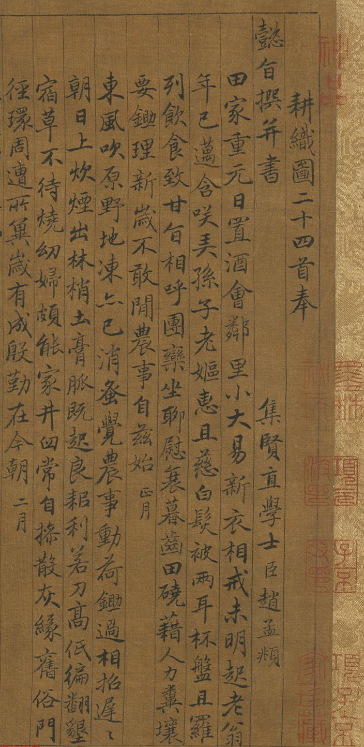 耕織圖二十四首奉
懿旨撰并書　集賢直學士臣趙孟頫
田家重元日置酒會鄰里小大易新衣相戒未明起老翁
年已邁含笑弄孫子老嫗惠且慈白髮被兩耳杯盤且羅
列飲食致甘旨相呼團欒坐聊慰衰暮齒田磽藉人力糞壤
要鋤理新歲不敢閒農事自茲始 正月
東風吹原野地凍亦已消蚤覺農事動荷鋤過相招遲〻
朝日上炊煙出林梢土膏脈既起良耜利若刀高低徧翻墾
宿草不待燒幼婦頗能家井臼常自操散灰緣舊俗門
徑環周遭所冀歲有成殷勤在今朝 二月